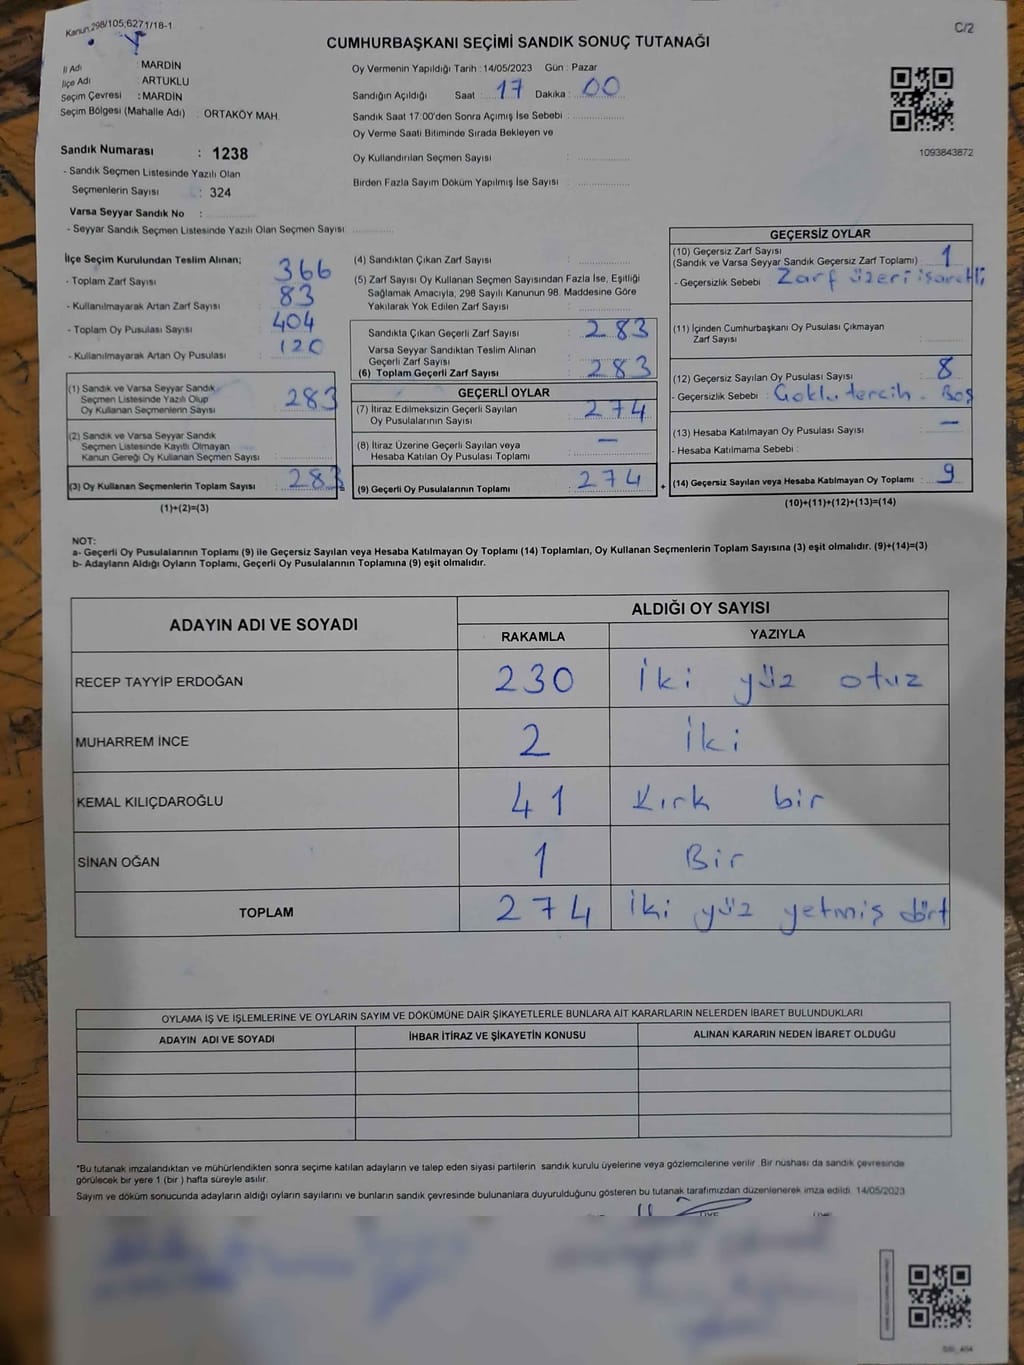 Kanun 298/105;6271/18-1
C/2
CUMHURBAŞKANI SEÇİMİ SANDIK SONUÇ TUTANAĞI
İl Adı : MARDİN
İlçe Adı : ARTUKLU
Seçim Çevresi : MARDİN
Seçim Bölgesi (Mahalle Adı) : ORTAKÖY MAH.
Sandık Numarası : 1238
- Sandık Seçmen Listesinde Yazılı Olan
Seçmenlerin Sayısı : 324
Varsa Seyyar Sandık No :
- Seyyar Sandık Seçmen Listesinde Yazılı Olan Seçmen Sayısı
Oy Vermenin Yapıldığı Tarih : 14/05/2023 Gün : Pazar
Sandığın Açıldığı Saat : 17 Dakika : 00
Sandık Saat 17:00'den Sonra Açımış İse Sebebi :
Oy Verme Saati Bitiminde Sırada Bekleyen ve
Oy Kullandırılan Seçmen Sayısı :
Birden Fazla Sayım Döküm Yapılmış İse Sayısı :
1093843872
İlçe Seçim Kurulundan Teslim Alınan;
- Toplam Zarf Sayısı : 366
- Kullanılmayarak Artan Zarf Sayısı : 83
- Toplam Oy Pusulası Sayısı : 404
- Kullanılmayarak Artan Oy Pusulası : 120
(1) Sandık ve Varsa Seyyar Sandık
Seçmen Listesinde Yazılı Olup
Oy Kullanan Seçmenlerin Sayısı : 283
(2) Sandık ve Varsa Seyyar Sandık
Seçmen Listesinde Kayıtlı Olmayan
Kanun Gereği Oy Kullanan Seçmen Sayısı :
(3) Oy Kullanan Seçmenlerin Toplam Sayısı : 283
(1)+(2)=(3)
(4) Sandıktan Çıkan Zarf Sayısı :
(5) Zarf Sayısı Oy Kullanan Seçmen Sayısından Fazla İse, Eşitliği
Sağlamak Amacıyla, 298 Sayılı Kanunun 98. Maddesine Göre
Yakılarak Yok Edilen Zarf Sayısı :
Sandıkta Çıkan Geçerli Zarf Sayısı : 283
Varsa Seyyar Sandıktan Teslim Alınan
Geçerli Zarf Sayısı :
(6) Toplam Geçerli Zarf Sayısı : 283
GEÇERLİ OYLAR
(7) İtiraz Edilmeksizin Geçerli Sayılan
Oy Pusulalarının Sayısı : 274
(8) İtiraz Üzerine Geçerli Sayılan veya
Hesaba Katılan Oy Pusulası Toplamı : —
(9) Geçerli Oy Pusulalarının Toplamı : 274
+
GEÇERSİZ OYLAR
(10) Geçersiz Zarf Sayısı
(Sandık ve Varsa Seyyar Sandık Geçersiz Zarf Toplamı) : 1
- Geçersizlik Sebebi : Zarf üzeri işaretli
(11) İçinden Cumhurbaşkanı Oy Pusulası Çıkmayan
Zarf Sayısı :
(12) Geçersiz Sayılan Oy Pusulası Sayısı : 8
- Geçersizlik Sebebi : Çoklu tercih - Boş
(13) Hesaba Katılmayan Oy Pusulası Sayısı : —
- Hesaba Katılmama Sebebi :
(14) Geçersiz Sayılan veya Hesaba Katılmayan Oy Toplamı : 9
(10)+(11)+(12)+(13)=(14)
NOT:
a- Geçerli Oy Pusulalarının Toplamı (9) ile Geçersiz Sayılan veya Hesaba Katılmayan Oy Toplamı (14) Toplamları, Oy Kullanan Seçmenlerin Toplam Sayısına (3) eşit olmalıdır. (9)+(14)=(3)
b- Adayların Aldığı Oyların Toplamı, Geçerli Oy Pusulalarının Toplamına (9) eşit olmalıdır.
ADAYIN ADI VE SOYADI ALDIĞI OY SAYISI
RAKAMLA YAZIYLA
RECEP TAYYİP ERDOĞAN 230 İki yüz otuz
MUHARREM İNCE 2 İki
KEMAL KILIÇDAROĞLU 41 Kırk bir
SİNAN OĞAN 1 Bir
TOPLAM 274 İki yüz yetmiş dört
OYLAMA İŞ VE İŞLEMLERİNE VE OYLARIN SAYIM VE DÖKÜMÜNE DAİR ŞİKAYETLERLE BUNLARA AİT KARARLARIN NELERDEN İBARET BULUNDUKLARI
ADAYIN ADI VE SOYADI İHBAR İTİRAZ VE ŞİKAYETİN KONUSU ALINAN KARARIN NEDEN İBARET OLDUĞU
*Bu tutanak imzalandıktan ve mühürlendikten sonra seçime katılan adayların ve talep eden siyasi partilerin sandık kurulu üyelerine veya gözlemcilerine verilir. Bir nüshası da sandık çevresinde
görülecek bir yere 1 (bir ) hafta süreyle asılır.
Sayım ve döküm sonucunda adayların aldığı oyların sayılarını ve bunların sandık çevresinde bulunanlara duyurulduğunu gösteren bu tutanak tarafımızdan düzenlenerek imza edildi. 14/05/2023